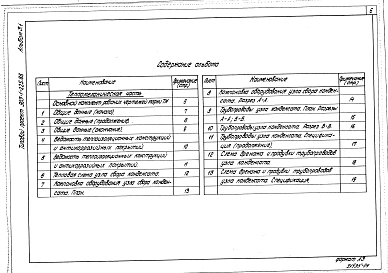 5
Альбом 7.1
Типовой проект 903-1-225.86
Содержание альбома
Лист Наименование Примечание (стр.)
Тепломеханическая часть
Основной комплект рабочих чертежей марки ТМ 3
1 Общие данные (начало) 7
2 Общие данные (продолжение) 8
3 Общие данные (окончание) 9
4 Ведомость теплоизоляционных конструкций
и антикоррозийных покрытий 10
5 Ведомость теплоизоляционных конструкций
и антикоррозийных покрытий 11
6 Тепловая схема узла сбора конденсата. 12
7 Компоновка оборудования узла сбора конден-
сата. План 13
Лист Наименование Примечание (стр.)
8 Компоновка оборудования узла сбора конден-
сата. Разрез А-А. 14
9 Трубопроводы узла конденсата. План. Разрезы
А-А; Б-Б. 15
10 Трубопроводы узла конденсата. Разрез В-В. 16
11 Трубопроводы узла конденсата. Специфика-
ция (продолжение) 17
12 Схема дренажа и продувки трубопроводов
узла конденсата 18
13 Схема дренажа и продувки трубопроводов
узла конденсата. Спецификация. 19
формат А3